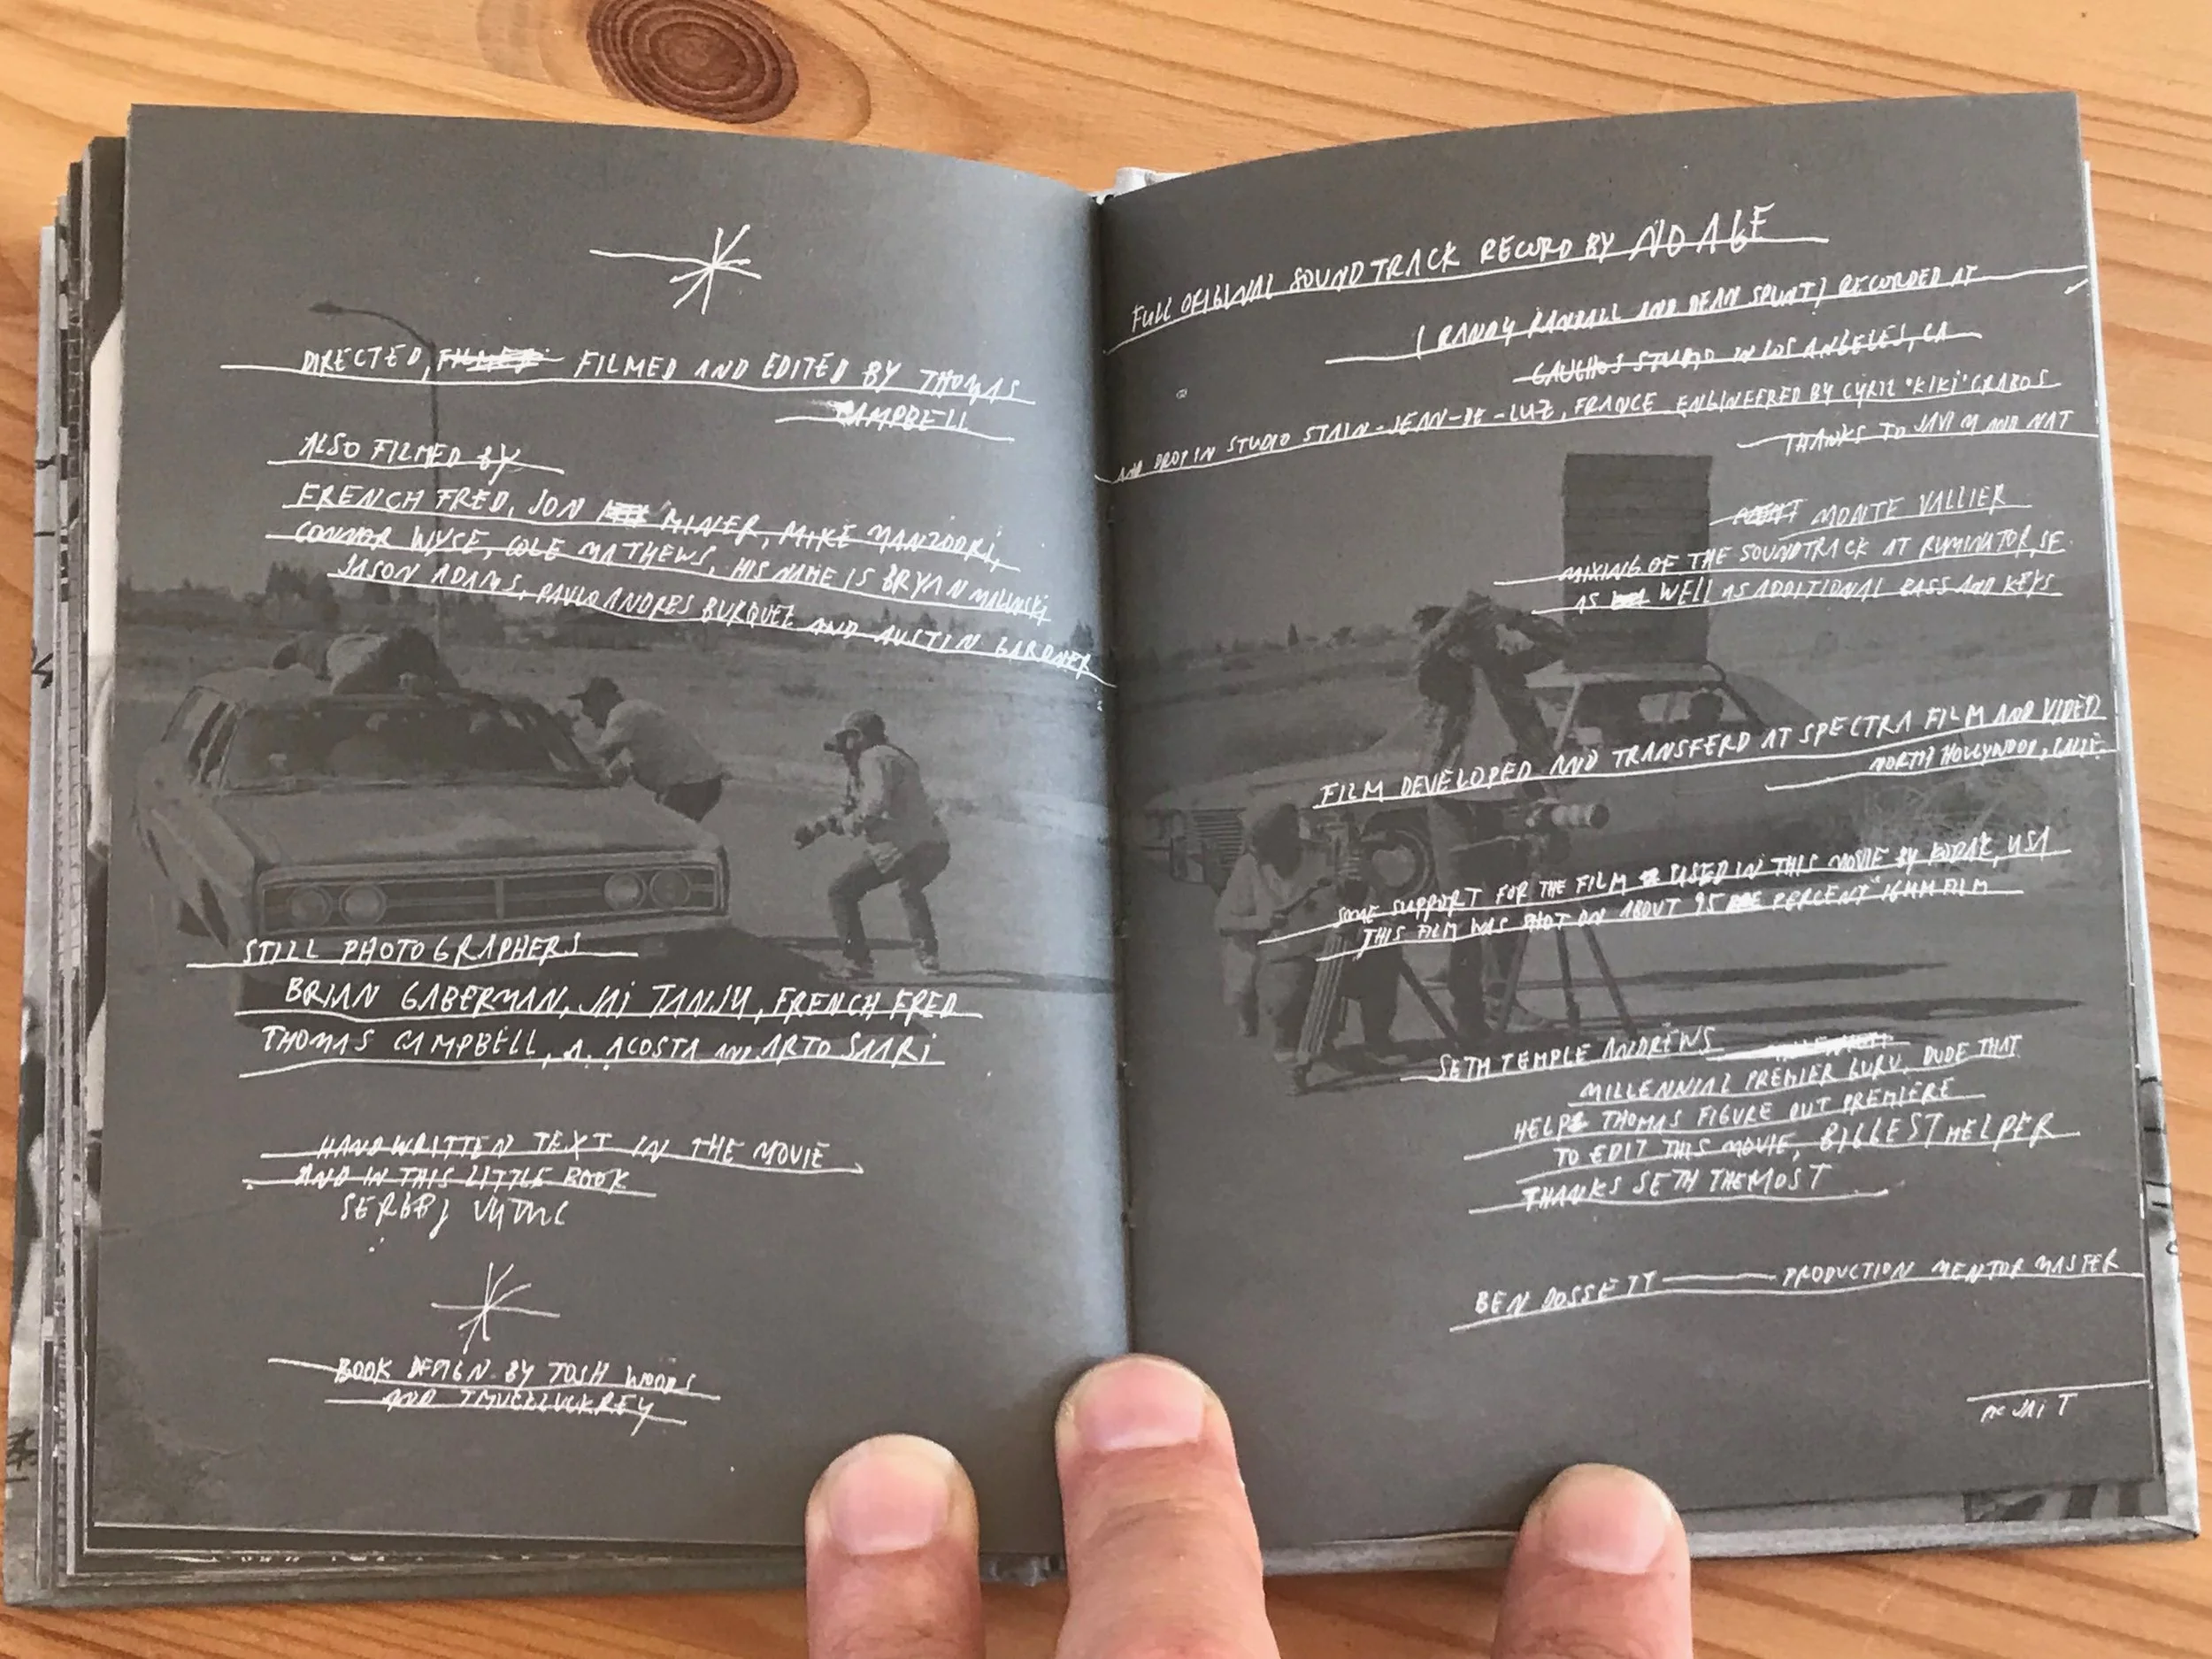 DIRECTED, FILMED AND EDITED BY THOMAS
CAMPBELL
ALSO FILMED BY
FRENCH FRED, JON MINER, MIKE MANZOORI,
CONNOR WYSE, COLE MATHEWS, HIS NAME IS BRYAN MALINSKI,
JASON ADAMS, PAVLO ANDRES BURQUEZ AND AUSTIN GARDNER
STILL PHOTOGRAPHERS
BRIAN GABERMAN, JAI TANJU, FRENCH FRED
THOMAS CAMPBELL, A. ACOSTA AND ARTO SAARI
HANDWRITTEN TEXT IN THE MOVIE
AND IN THIS LITTLE BOOK
SERGEJ VUTUC
BOOK DESIGN BY TOSH WOODS
AND TMUCKLUCKREY
FULL ORIGINAL SOUNDTRACK RECORD BY NO AGE
(RANDY RANDALL AND DEAN SPUNT) RECORDED AT
GAUCHOS STUDIO IN LOS ANGELES, CA
AND DROP IN STUDIO STAIN-JEAN-DE-LUZ, FRANCE ENGINEERED BY CYRIL "KIKI" GRABOS
THANKS TO JAVI M AND NAT
MONTE VALLIER
MIXING OF THE SOUNDTRACK AT RUMINATOR, SF.
AS WELL AS ADDITIONAL BASS AND KEYS
FILM DEVELOPED AND TRANSFERD AT SPECTRA FILM AND VIDEO
NORTH HOLLYWOOD, CALIF.
SOME SUPPORT FOR THE FILM USED IN THIS MOVIE BY KODAK, USA
THIS FILM WAS SHOT ON ABOUT 95 PERCENT 16MM FILM
SETH TEMPLE ANDREWS
MILLENNIAL PREMIER GURU, DUDE THAT
HELP THOMAS FIGURE OUT PREMIERE
TO EDIT THIS MOVIE, BIGGEST HELPER
THANKS SETH THE MOST
BEN DOSSETT PRODUCTION MENTOR MASTER
JAI T